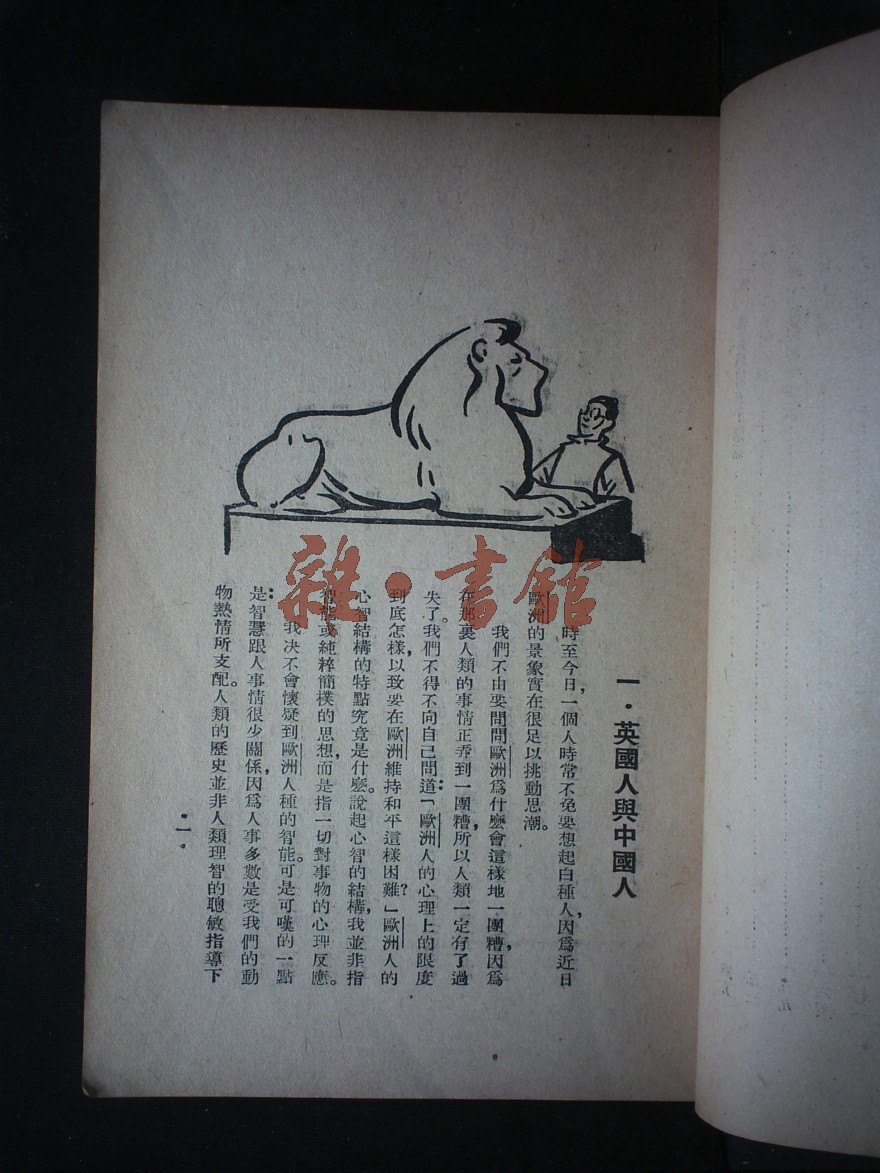 一・英國人與中國人
時至今日，一個人時常不免要想起白種人，因爲近日
歐洲的景象實在很足以挑動思潮。
我們不由要問問歐洲爲什麼會這樣地一團糟，因爲
在那裏人類的事情正弄到一團糟，所以人類一定有了過
失了。我們不得不向自己問道：「歐洲人的心理上的限度
到底怎樣，以致要在歐洲維持和平這樣困難？」歐洲人的
心智結構的特點究竟是什麼。說起心智的結構，我並非指
智能或純粹簡樸的思想，而是指一切對事物的心理反應。
我决不會懷疑到歐洲人種的智能。可是可嘆的一點
是：智慧跟人事情很少關係，因爲人事多數是受我們的動
物熱情所支配。人類的歷史並非人類理智的聰敏指導下
・一・
雜・書館